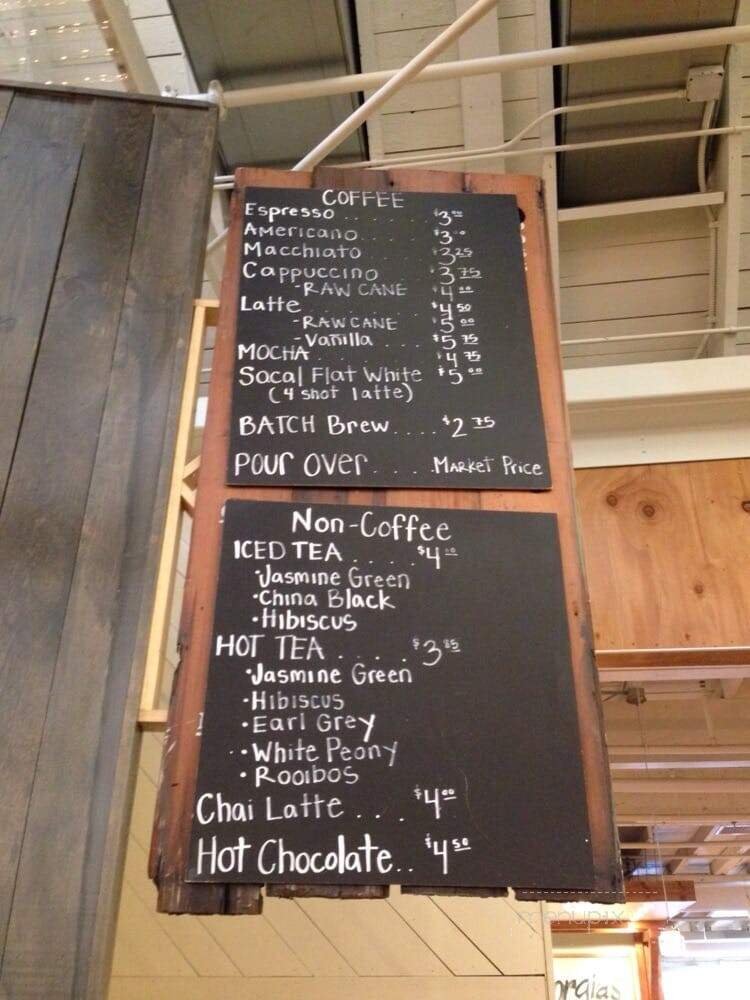 COFFEE
Espresso . . . . . . $3.00
Americano . . . . . $3.00
Macchiato . . . . . $3.25
Cappuccino $3.75
-RAW CANE $4.00
Latte . . . . . . . . $4.50
-RAW CANE $5.00
-Vanilla . . . . $5.75
MOCHA . . . . . . . $4.75
Socal Flat White $5.00
(4 shot latte)
BATCH Brew . . . . $2.75
POUR OVER . . . . . MARKET PRICE
Non-Coffee
ICED TEA . . . . $4.00
•Jasmine Green
•China Black
•Hibiscus
HOT TEA . . . . $3.85
•Jasmine Green
•Hibiscus
•Earl Grey
•White Peony
•Rooibos
Chai Latte . . . $4.00
Hot Chocolate.. $4.50
menupix